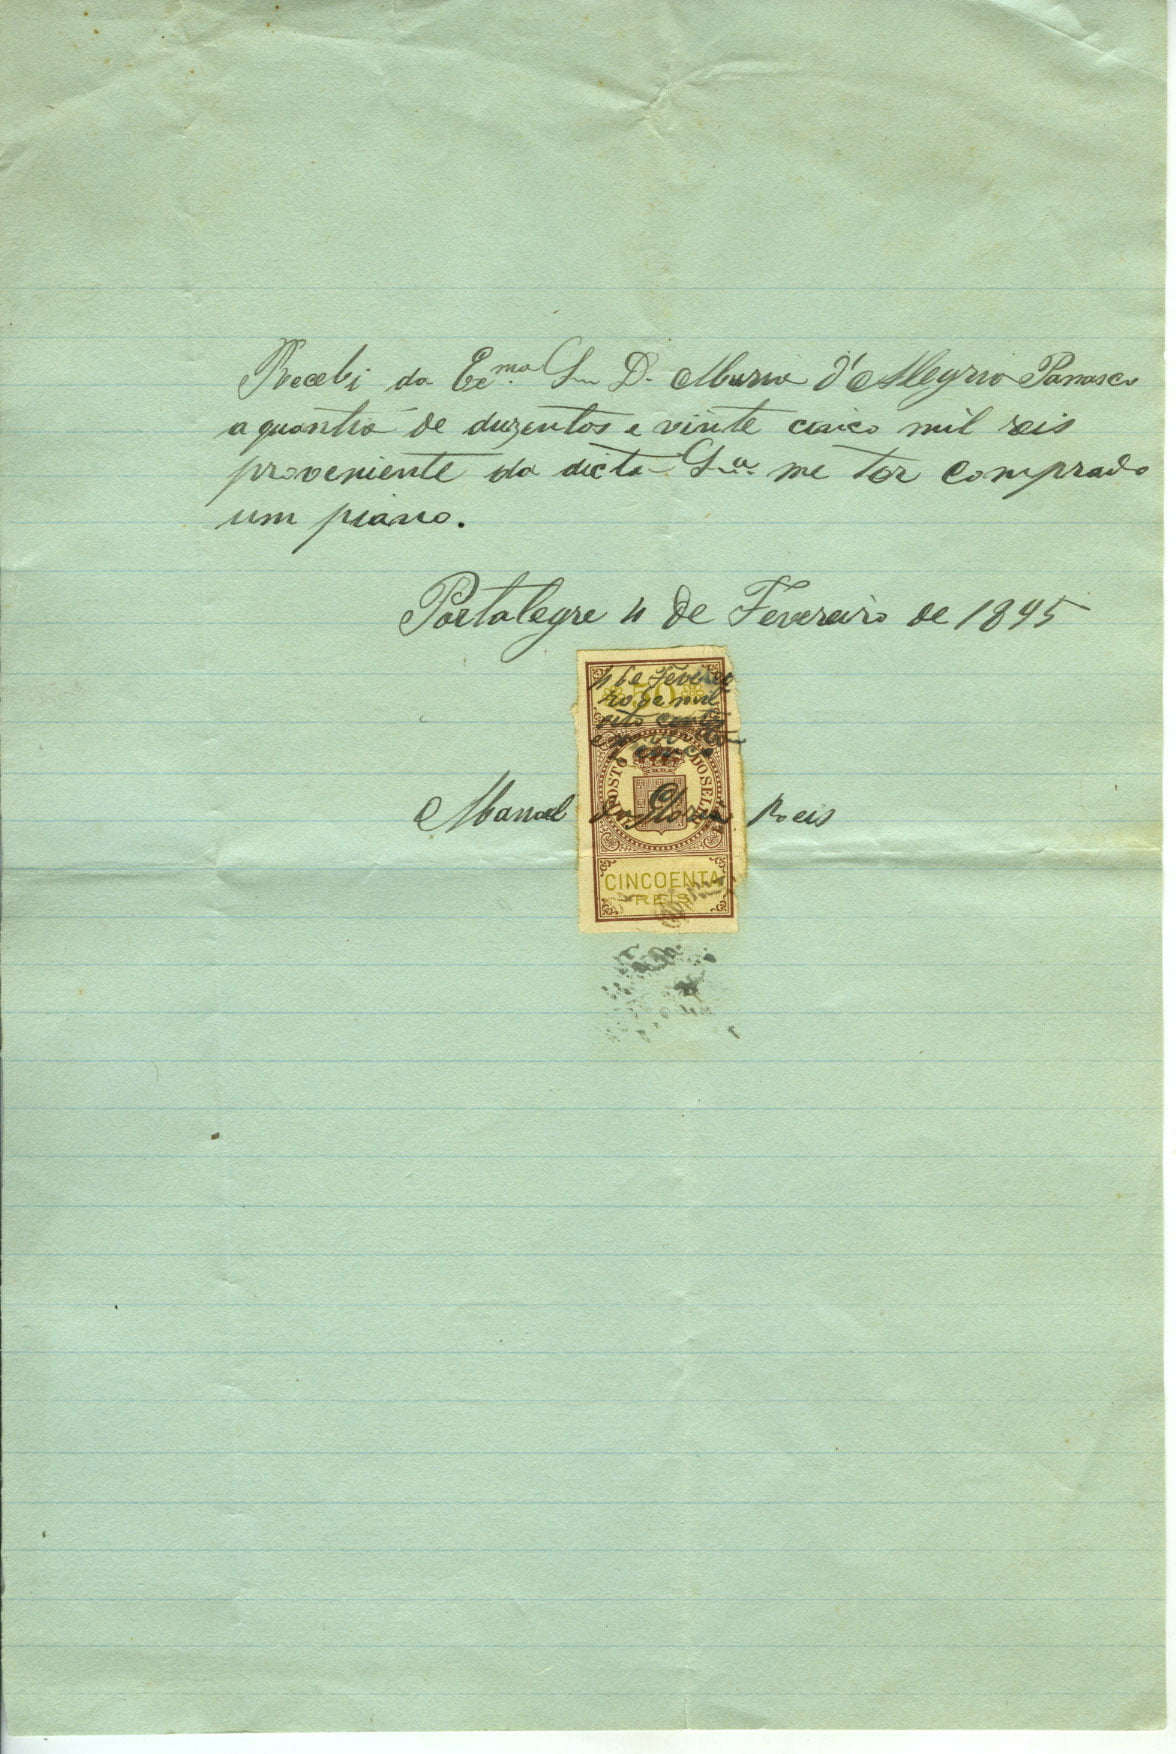 Recebi da Ex.ma Sra D. Maria d'Alegria Parrasco
a quantia de duzentos e vinte cinco mil reis
proveniente da dicta Sra. me ter comprado
um piano.
Portalegre 4 de Fevereiro de 1895
4 de Feverei
50
ro de mil
oito centos
e noventa
e cinco
IMPOSTO DO SELLO
Manoel da Gloria Reis
CINCOENTA
REIS